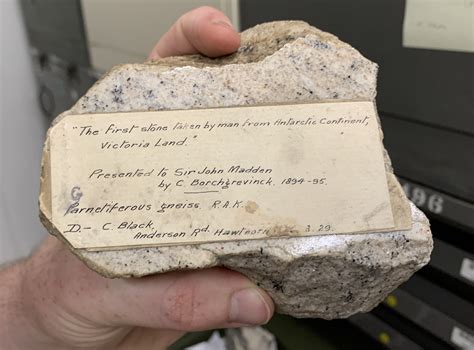 "The first stone taken by man from Antarctic Continent,
Victoria Land."
Presented to Sir John Madden
by C. Borchgrevinck. 1894-95.
Garnetiferous gneiss. R.A.K.
D.- C. Black,
Anderson Rd. Hawthorn 29.